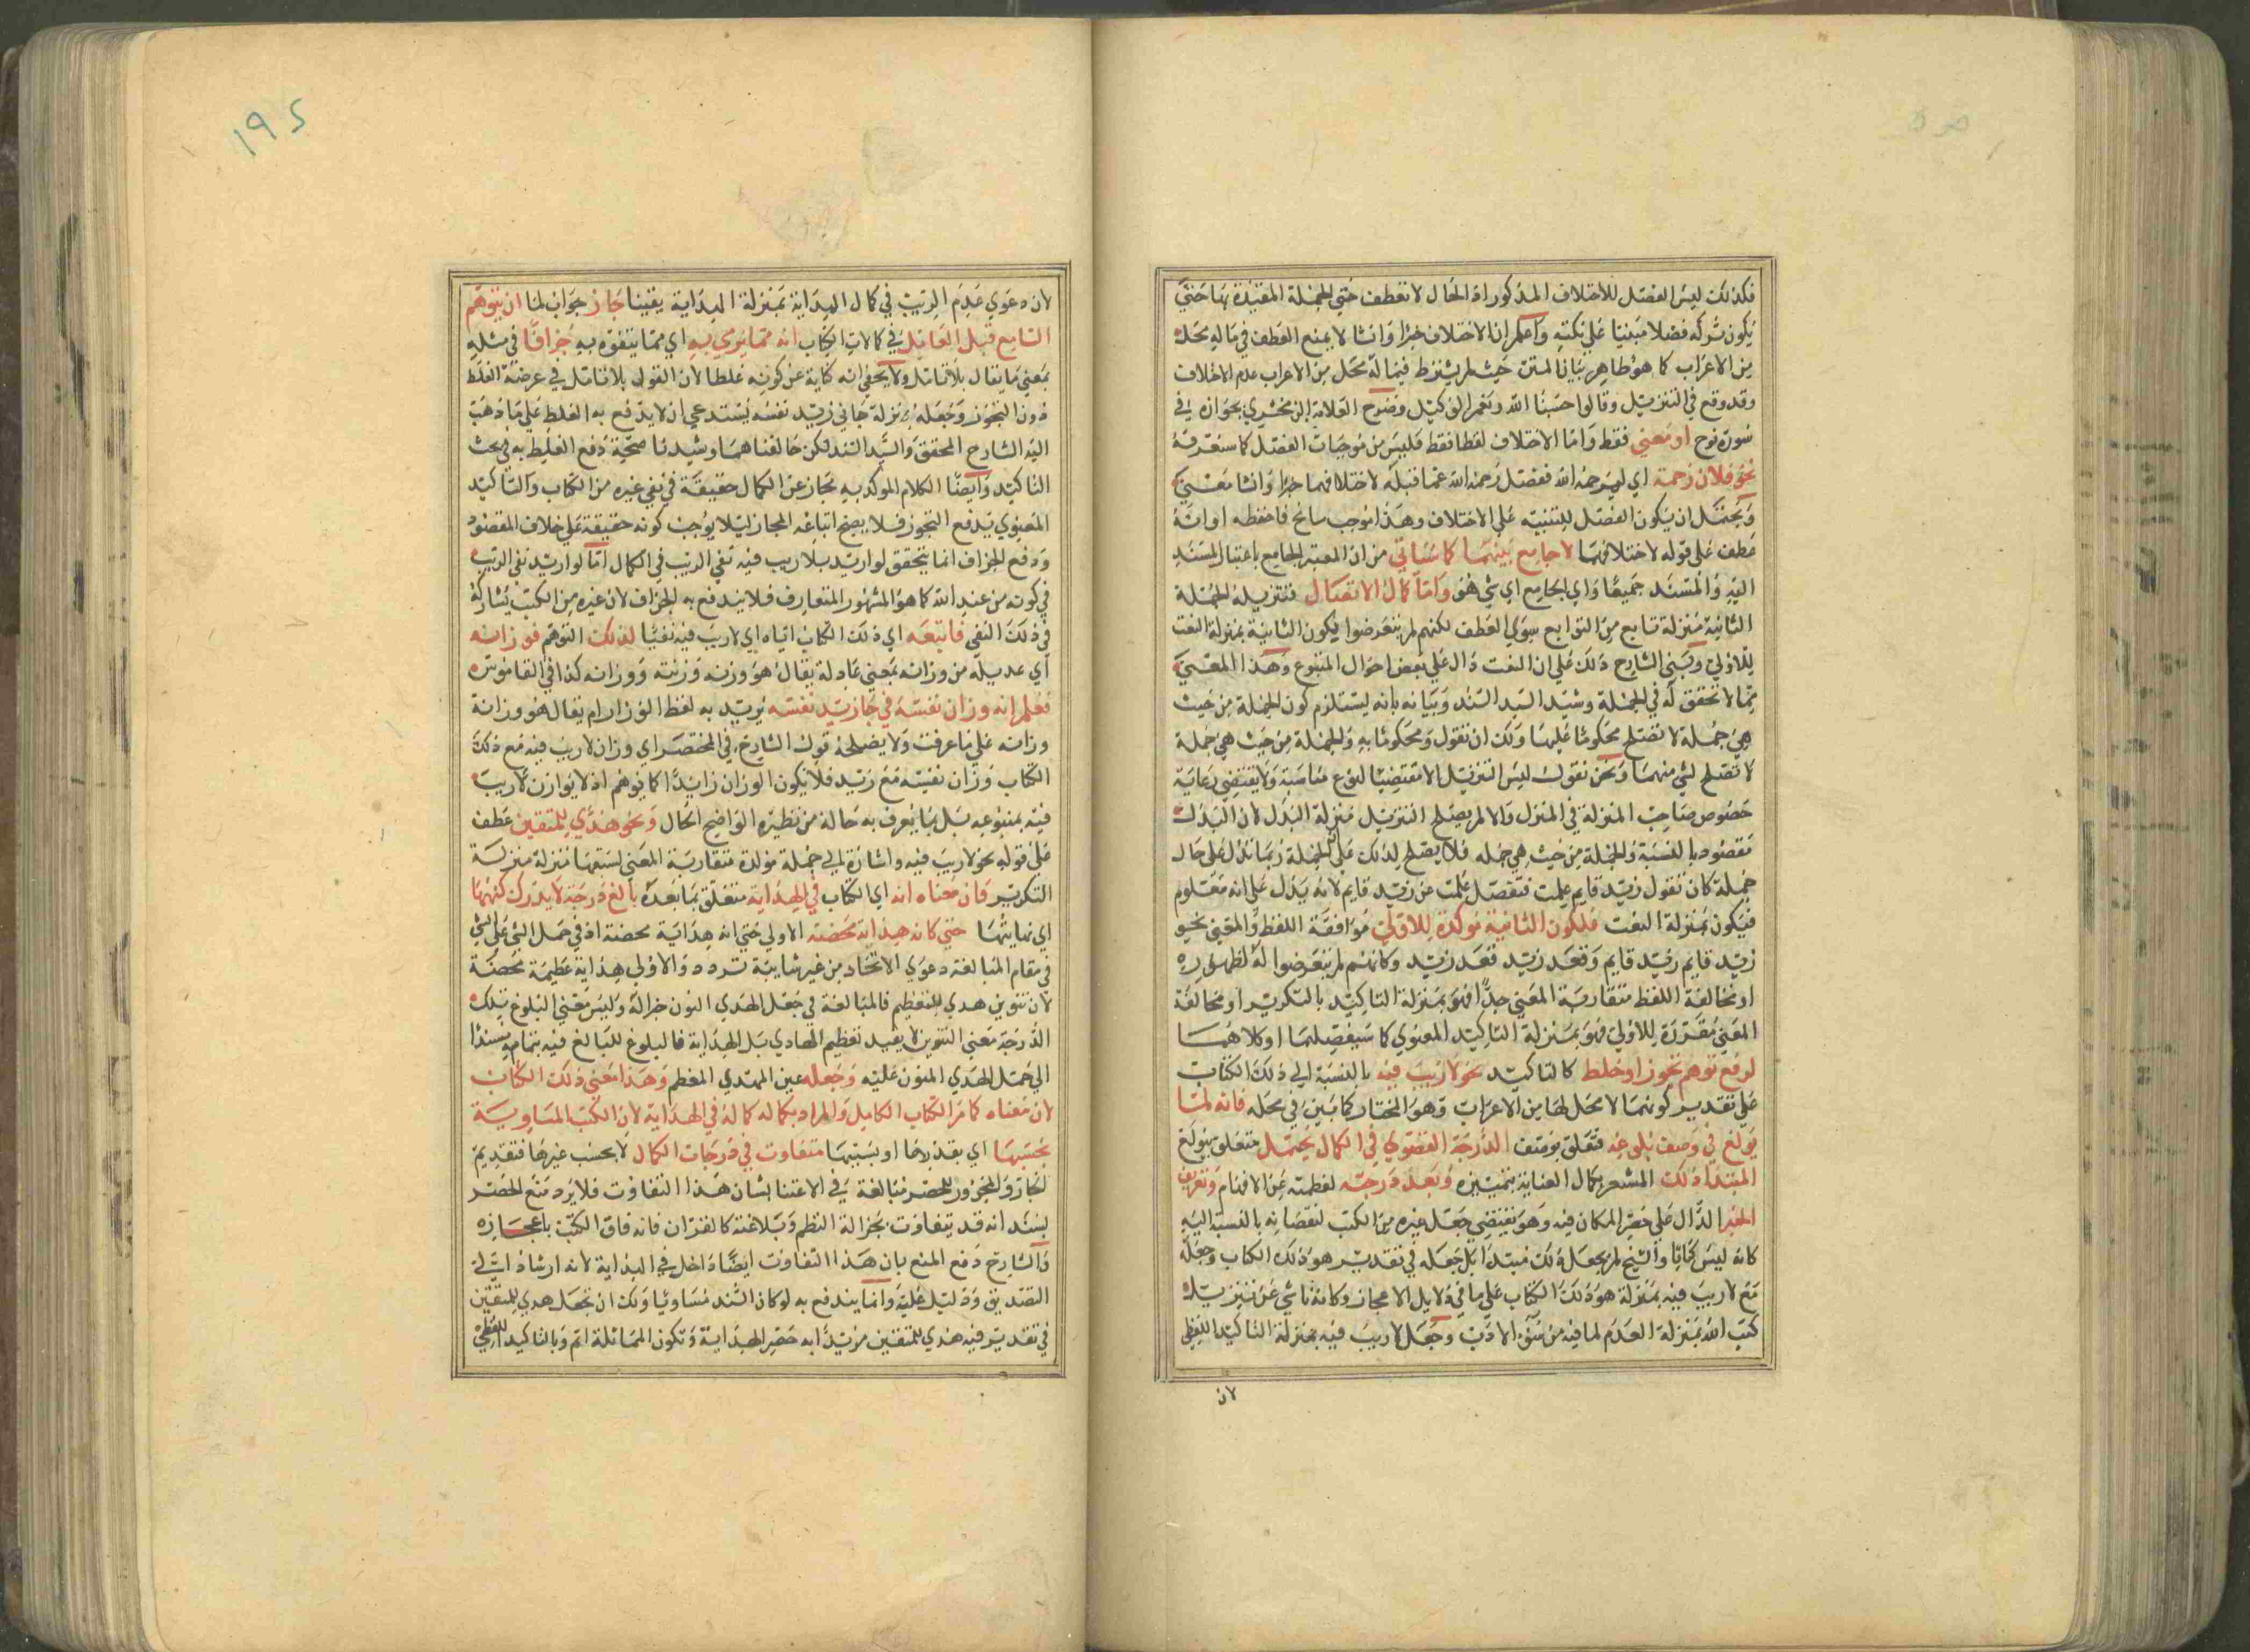 فكذلك ليس الفصل للاختلاف المذكور اذ الحال لا تعطف حتى الجملة المقيدة بها حتى
يكون تركه فصلا مبنيا على نكتة واعلم ان الاختلاف خبرا وانشا لا يمنع العطف في ماله محل
من الاعراب كما هو ظاهر بيان المتن حيث لم يشترط فيما له محل من الاعراب عدم الاختلاف
وقد وقع في التنزيل وقالوا حسبنا الله ونعم الوكيل وصرح العلامة الزمخشري بجوازه في
سورة نوح او معنى فقط واما الاختلاف لفظا فقط فليس من موجبات الفصل كما ستعرفه
نحو فلان رحمه اي ليرحمه الله ففصل رحمه الله عما قبله لاختلافهما خبرا وانشا معنى
ويحتمل ان يكون الفصل للتنبيه على الاختلاف وهذا موجب سانح فاحفظه او انه
عطف على قوله لاختلافهما لا جامع بينهما كما سياتي من ان المعتبر الجامع باعتبار المسند
اليه والمسند جميعا واي الجامع اي شي هو واما كمال الاتصال فتنزيله الجملة
الثانية منزلة تابع من التوابع سوى العطف لكنهم لم يتعرضوا لكون الثانية بمنزلة النعت
للاولى وبنى الشارح ذلك على ان النعت دال على بعض احوال المتبوع وهذا المعنى
مما لا تحقق له في الجملة وشيد السيد السند وبيانه بانه يستلزم كون الجملة من حيث
هي جملة لا تصلح محكوما عليها ولك ان تقول ومحكوما به والجملة من حيث هي جملة
لا تصلح لشي منهما ونحن نقول ليس التنزيل الا مقتضيا لنوع مناسبة ولا يقتضي رعاية
خصوص صاحب المنزلة في المنزل والا لم يصلح التنزيل منزلة البدل لان البدل
مقصود بالنسبة والجملة من حيث هي جملة فلا يصلح لذلك على الجملة ربما تدل على حال
جملة كان تقول زيد قايم علمت فتفصل علمت عن زيد قايم لانه يدل على انه معلوم
فيكون بمنزلة النعت فلكون الثانية موكدة للاولى موافقة اللفظ والمعنى نحو
زيد قايم زيد قايم وقعد زيد قعد زيد وكانهم لم يتعرضوا له لظهوره
او مخالفة اللفظ متقاربة المعنى جدا فهو بمنزلة التاكيد بالتكرير او مخالفة
المعنى مقررة للاولى فهو بمنزلة التاكيد المعنوي كما سيفصلهما او كلاهما
لدفع توهم تجوز او غلط كالتاكيد نحو لا ريب فيه بالنسبة الى ذلك الكتاب
على تقدير كونهما لا محل لها من الاعراب وهو المختار كما بين في محله فانه لما
بولغ في وصفه ببلوغه متعلق بوصف الدرجة القصوى في الكمال يحتمل متعلق ببولغ
المبتدا ذلك المشعر بكمال العناية بتمييزه وبعد درجته لعظمته عن الافهام وتعريف
الخبر الدال على حصر المكان فيه وهو يقتضي جعل غيره من الكتب لنقصانه بالنسبة اليه
كانه ليس كتابا والشيخ لم يجعل ذلك مبتدا بل جعله في تقدير هو ذلك الكتاب وجعله
مع لا ريب فيه بمنزلة هو ذلك الكتاب على ما في دلايل الاعجاز وكانه ناشي عن تنزيل
كتب الله بمنزلة العدم لما فيه من سوء الادب وجعل لا ريب فيه بمنزلة التاكيد اللفظي
لان
١٩٥
لان دعوى عدم الريب في كمال الهداية بمنزلة الهداية يقينا جاز جواب لما ان يتوهم
السامع قبل التامل في كمالات الكتاب انه مما يرمى به اي مما يتفوه به جزافا في مثله
بمعنى ما يقال بلا تامل ولا يخفى انه كناية عن كونه غلطا لان القول بلا تامل في عرضة الغلط
دون التجوز وجعله بمنزلة جاني زيد نفسه يستدعي ان لا يدفع به الغلط على ما ذهب
اليه الشارح المحقق والسيد السند لكن خالفناهما وشيدنا صحة دفع الغلط به في بحث
التاكيد وايضا الكلام الموكد به مجاز عن الكمال حقيقة في نفي غيره من الكتاب والتاكيد
المعنوي يدفع التجوز فلا يصح اتباعه المجاز ليلا يوجب كونه حقيقة على خلاف المقصود
ودفع الجزاف انما يتحقق لو اريد بلا ريب فيه نفي الريب في الكمال اما لو اريد نفي الريب
في كونه من عند الله كما هو المشهور المتعارف فلا يندفع به الجزاف لان غيره من الكتب يشاركه
في ذلك النفي فاتبعه اي ذلك الكتاب اياه اي لا ريب فيه نفيا لذلك التوهم فوزانه
اي عديله من وزانه بمعنى عادله يقال هو وزنه وزنته ووزانه كذا في القاموس
فعلم انه وزان نفسه في جا زيد نفسه يريد به لفظ الوزان ام يقال هو وزانة
وزانه على ما عرفت ولا يصلحه قول الشارح في المختصر اي وزان لا ريب فيه مع ذلك
الكتاب وزان نفسه مع زيد فلا يكون الوزان زايدا كما يوهم اذ لا يوازن لا ريب
فيه بمتبوعه بل بما يعرف به حاله من نظيره الواضح الحال ونحو هدى للمتقين عطف
على قوله نحو لا ريب فيه واشارة الى جملة مولدة متقاربة المعنى لسبقها منزلة منزلة
التكرير فان معناه انه اي الكتاب في الهداية متعلق بما بعده بالغ درجة لا يدرك كنهها
اي نهايتها حتى كانه هداية محضة الاولى حتى انه هداية محضة اذ في حمل الشي على الشي
في مقام المبالغة دعوى الاتحاد من غير شايبة تردد والاولى هداية عظيمة محضة
لان تنوين هدى للتعظيم فالمبالغة في جعل الهدى النون جزالة وليس معنى البلوغ تلك
الدرجة معنى التنوين لا يفيد تعظيم الهادي بل الهداية فالبلوغ للبالغ فيه بتمامه مستندا
الى حمل الهدى المنون عليه وجعله عين المهتدي المعظم وهذا معنى ذلك الكتاب
لان معناه كما مر الكتاب الكامل والمراد بكماله كماله في الهداية لان الكتب السماوية
بحسبها اي بقدرها او بسببها متفاوت في درجات الكمال لا بحسب غيرها فتقديم
الجار والمجرور للحصر مبالغة في الاعتنا بشان هذا التفاوت فلا يرد منع الحصر
بسند انه قد يتفاوت بجزالة النظم وبلاغته كالقران فانه فاق الكتب باعجازه
والشارح دفع المنع بان هذا التفاوت ايضا داخل في الهداية لانه ارشاد الى
التصديق ودليل عليه وانما يندفع به لو كان السند مساويا ولك ان تجعل هدى للمتقين
في تقدير فيه هدى للمتقين مزيدا به حصر الهداية وتكون المماثلة اتم وبالتاكيد اللفظي